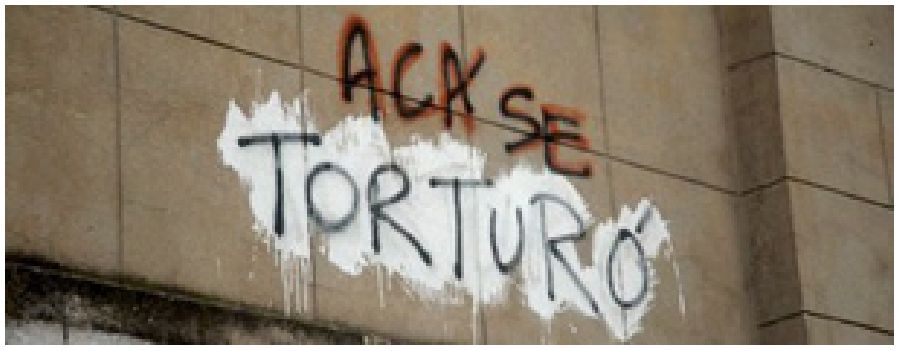 ACA SE
TORTURÓ